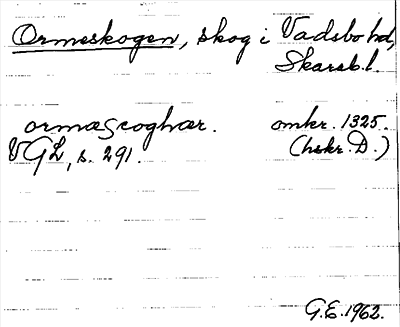 Ormeskogen, skog i Vadsbo hd,
Skarab. l.
ormæscoghær. omkr. 1325.
VGL, s. 291. (hskr. D.)
G.E. 1962.